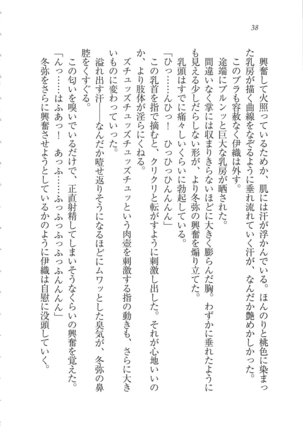 38
興奮して火照っているためか、肌には汗が浮かんでいる。ほんのりと桃色に染まっ
た乳房が描く曲線をなぞるように垂れ流れていく汗が、なんだか艶めかしかった。
このブラも容赦なく伊織は外す。
途端にブルンッと巨大な乳房が晒された。
間違いなく掌には収まりきらないほどに大きく膨らんだ胸。わずかに垂れたように
も見える少しだらしない形が、より冬弥の興奮を煽り立てた。
乳頭はすでに痛々しいくらいに勃起している。
「ひっ……んひっ！　くひっひんんんっ」
この乳首を指で摘むと、クリクリと転がすように刺激し出した。それが心地いいの
か、より肢体が淫らにくねる。
ズチュッズチュッズチュッズチュッという肉壺を刺激する指の動きも、さらに大き
いものに変わっていった。
溢れ出す汗――なんだか噎せ返りそうになるほどにムワッとした臭気が、冬弥の鼻
腔をくすぐる。
この匂いを嗅いでいるだけで、正直射精してしまいそうなくらいの興奮を覚えた。
「んっ……はふあっ！　あっあっ……ふっふっふっふんんんん」
冬弥をさらに興奮させようとしているかのように伊織は自慰に没頭していく。